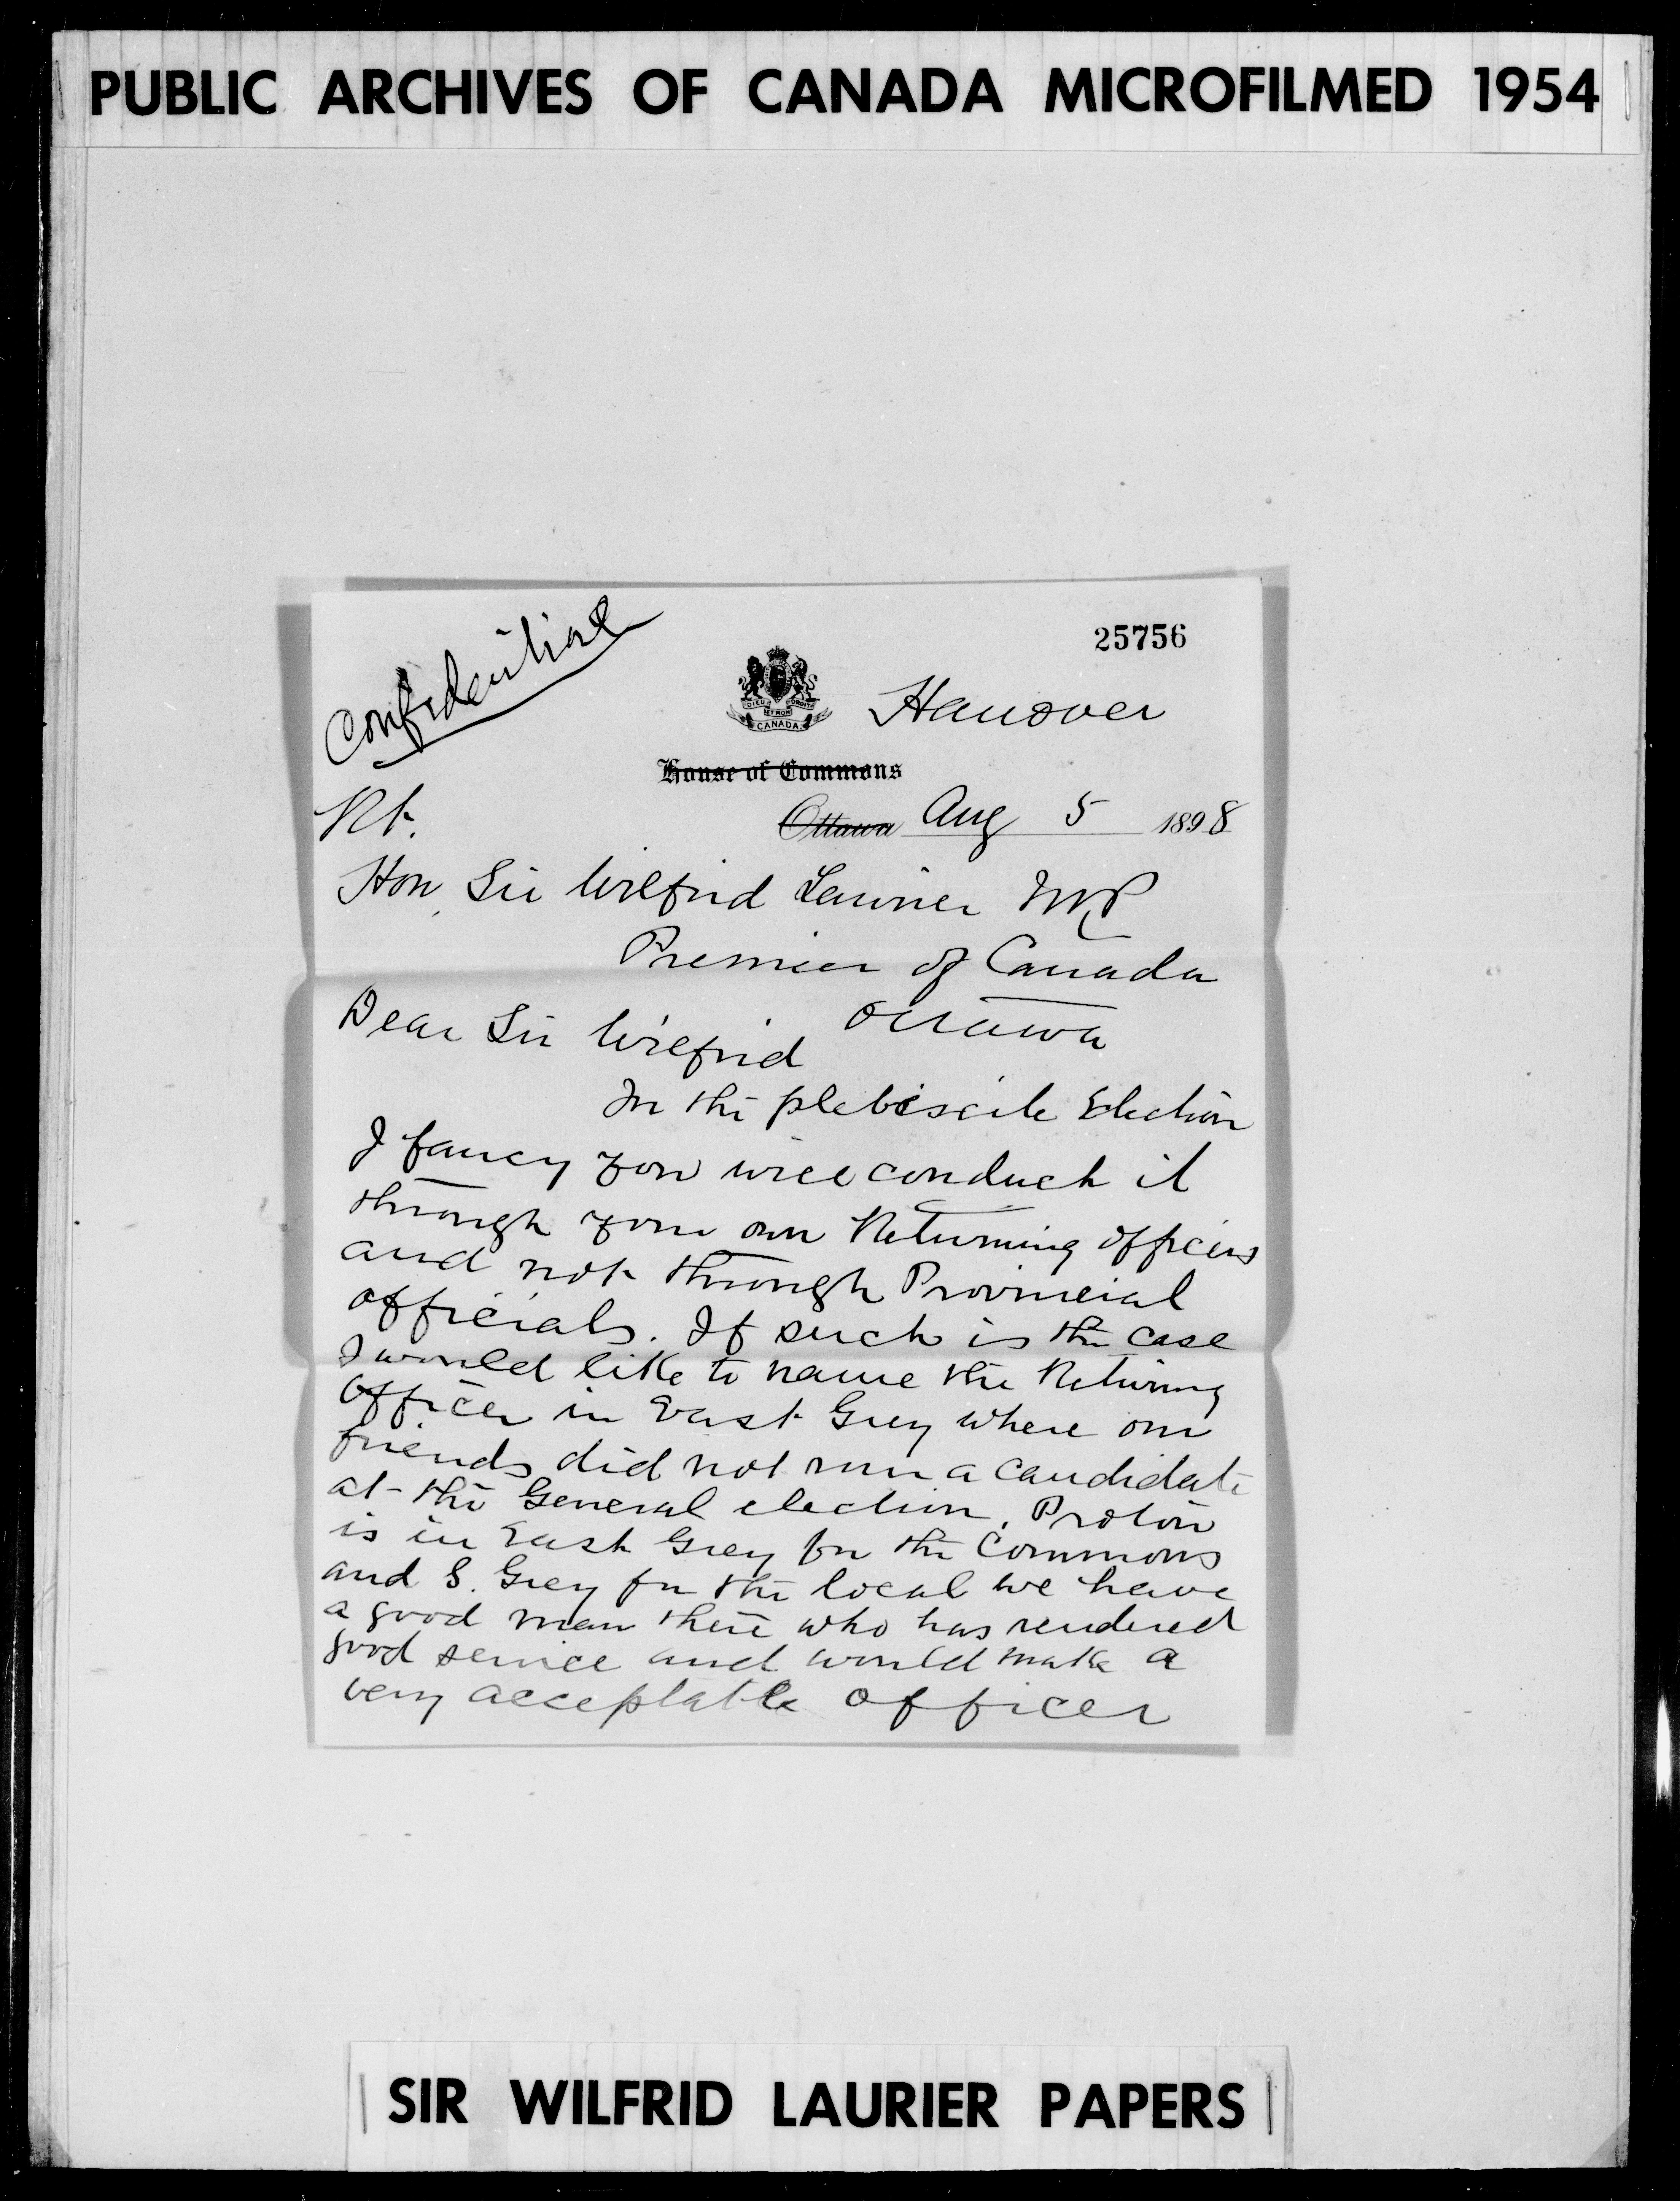 PUBLIC ARCHIVES OF CANADA MICROFILMED 1954
Confidential
25756
DIEU ET MON DROIT
CANADA
Hanover
House of Commons
Ottawa Aug 5 1898
Rt.
Hon Sir Wilfrid Laurier MP
Premier of Canada
Ottawa
Dear Sir Wilfrid
In the plebiscite Election
I fancy you will conduct it
through your own Returning officers
and not through Provincial
officials. If such is the case
I would like to name the Returning
Officer in East Grey where our
friends did not run a candidate
at the General election. Proton
is in East Grey for the Commons
and S. Grey for the local we have
a good man there who has rendered
good service and would make a
very acceptable officer
SIR WILFRID LAURIER PAPERS